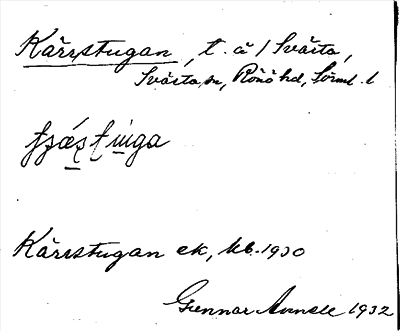 Kärrstugan, t. å / Svärta,
Svärta sn, Rönö hd, Sörml. l
Kärrstugan ek, kb. 1930
Gunnar 1932